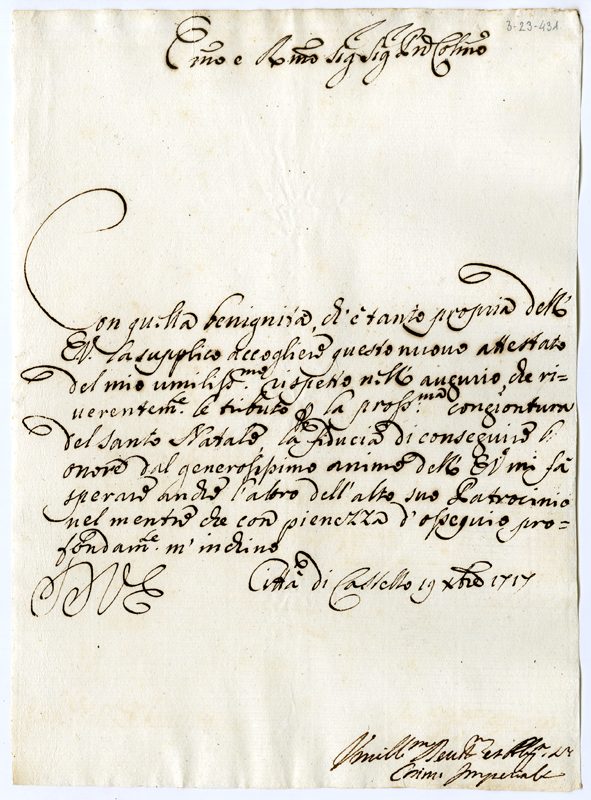 3-23-431
Em̃o e Rm̃o Sig Sig Prõ Colm̃o
Con quella benignità, ch'è tanto propria dell'
EV. la supplico accogliere questo nuovo attestato
del mio umiliss.mo rispetto nell' augurio, che ri=
verentem.e le tributo p la pross.ma congiontura
del santo Natale. la fiducia di conseguire l'
onore dal generosissimo animo dell' EV. mi fà
sperare anche l'altro dell'alto suo Patrocinio
nel mentre che con pienezza d'ossequio pro=
fondam.e m'inchino
DVE Città di Castello 19 Xbre 1717
Umill.mo Devot.mo et Obl.mo
Imperiale